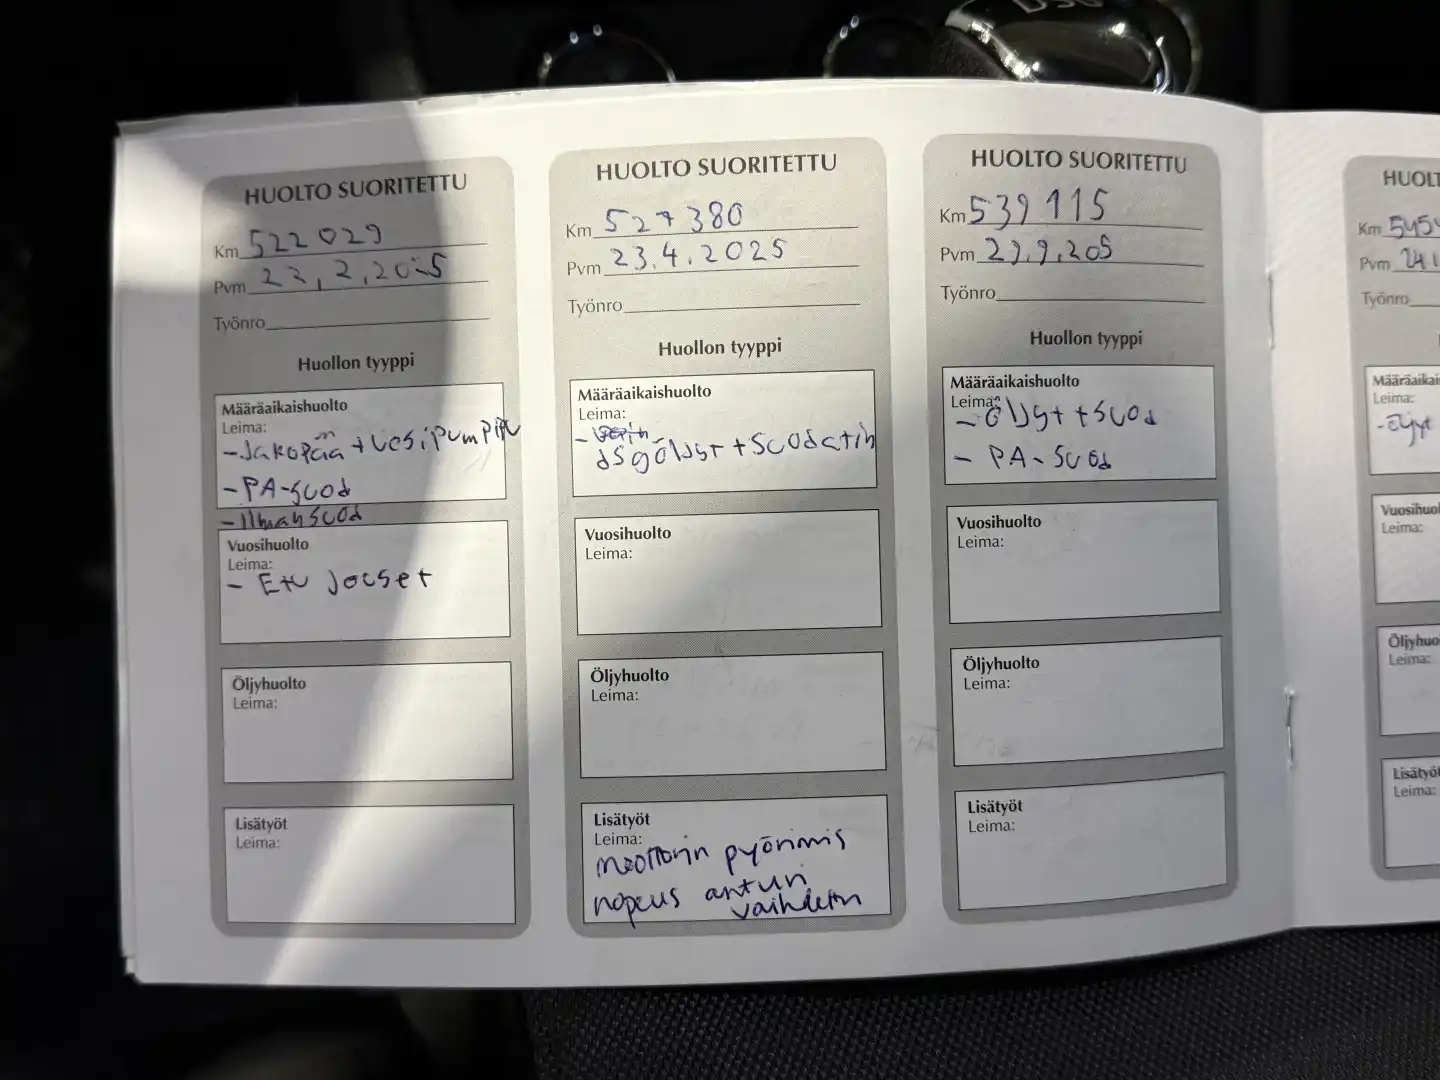 DSG
HUOLTO SUORITETTU
Km 522 029
Pvm 22,2,2025
Työnro
Huollon tyyppi
Määräaikaishuolto
Leima:
- Jakopää + vesipumppu
- PA-suod
- Ilmansuod
Vuosihuolto
Leima:
- Etu Jouset
Öljyhuolto
Leima:
Lisätyöt
Leima:
HUOLTO SUORITETTU
Km 527 380
Pvm 23.4.2025
Työnro
Huollon tyyppi
Määräaikaishuolto
Leima:
-
dSgöljyt + Suodatin
Vuosihuolto
Leima:
Öljyhuolto
Leima:
Lisätyöt
Leima:
moottorin pyörimis
nopeus anturi
vaihdettu
HUOLTO SUORITETTU
Km 539 115
Pvm 29.9.205
Työnro
Huollon tyyppi
Määräaikaishuolto
Leima:
- öljyt + Suod
- PA-Suod
Vuosihuolto
Leima:
Öljyhuolto
Leima:
Lisätyöt
Leima:
HUOLT
Km 5454
Pvm 24.1
Työnro
Määräaikais
Leima:
- öljyt
Vuosihuol
Leima:
Öljyhuo
Leima:
Lisätyöt
Leima: